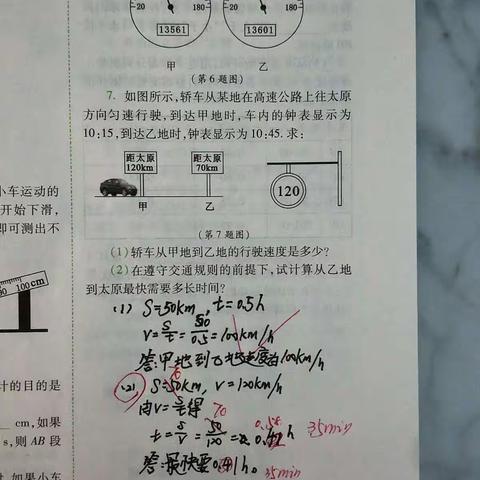 20 180
20 180
13561 13601
甲 乙
(第6题图)
7. 如图所示,轿车从某地在高速公路上往太原
方向匀速行驶,到达甲地时,车内的钟表显示为
10:15,到达乙地时,钟表显示为10:45.求:
距太原 120km
距太原 70km
120
甲 乙
(第7题图)
(1)轿车从甲地到乙地的行驶速度是多少?
(2)在遵守交通规则的前提下,试计算从乙地
到太原最快需要多长时间?
(1) S=50km, t=0.5h
V=S/t=50/0.5=100km/h
答:甲地到乙地速度为100km/h
(2) S=50km, V=120km/h
70
由V=S/t得
70
t=S/V=50/120=0.41h
0.58
35min
答:最快要0.41h。
35min
小车运动的
开始下滑,
即可测出不
90 100cm
计的目的是
cm,如果
s,则AB段
如果小车